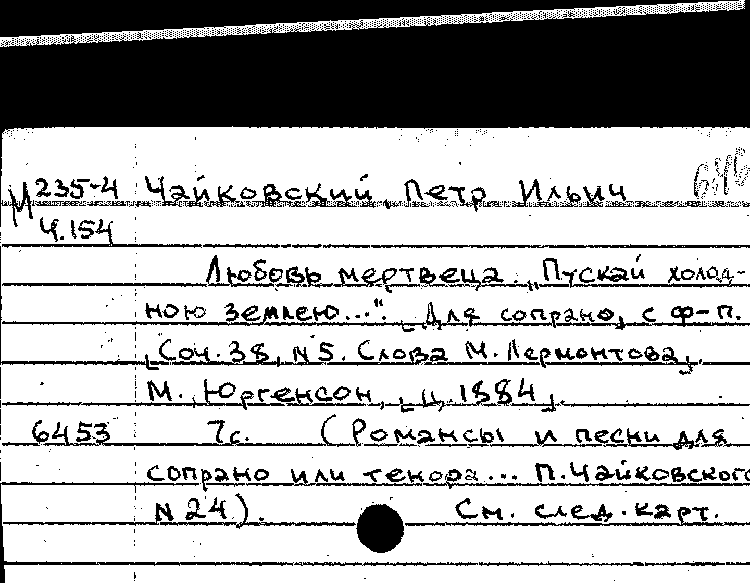 М 235-4 Чайковский, Петр Ильич 646
Ч.154
Любовь мертвеца. „Пускай холод-
ною землею...". [Для сопрано] с ф-п.
[Соч. 38, N 5. Слова М. Лермонтова].
М., Юргенсон, [ц. 1884].
6453 7с. (Романсы и песни для
сопрано или тенора... П. Чайковского
N 24). См. след. карт.